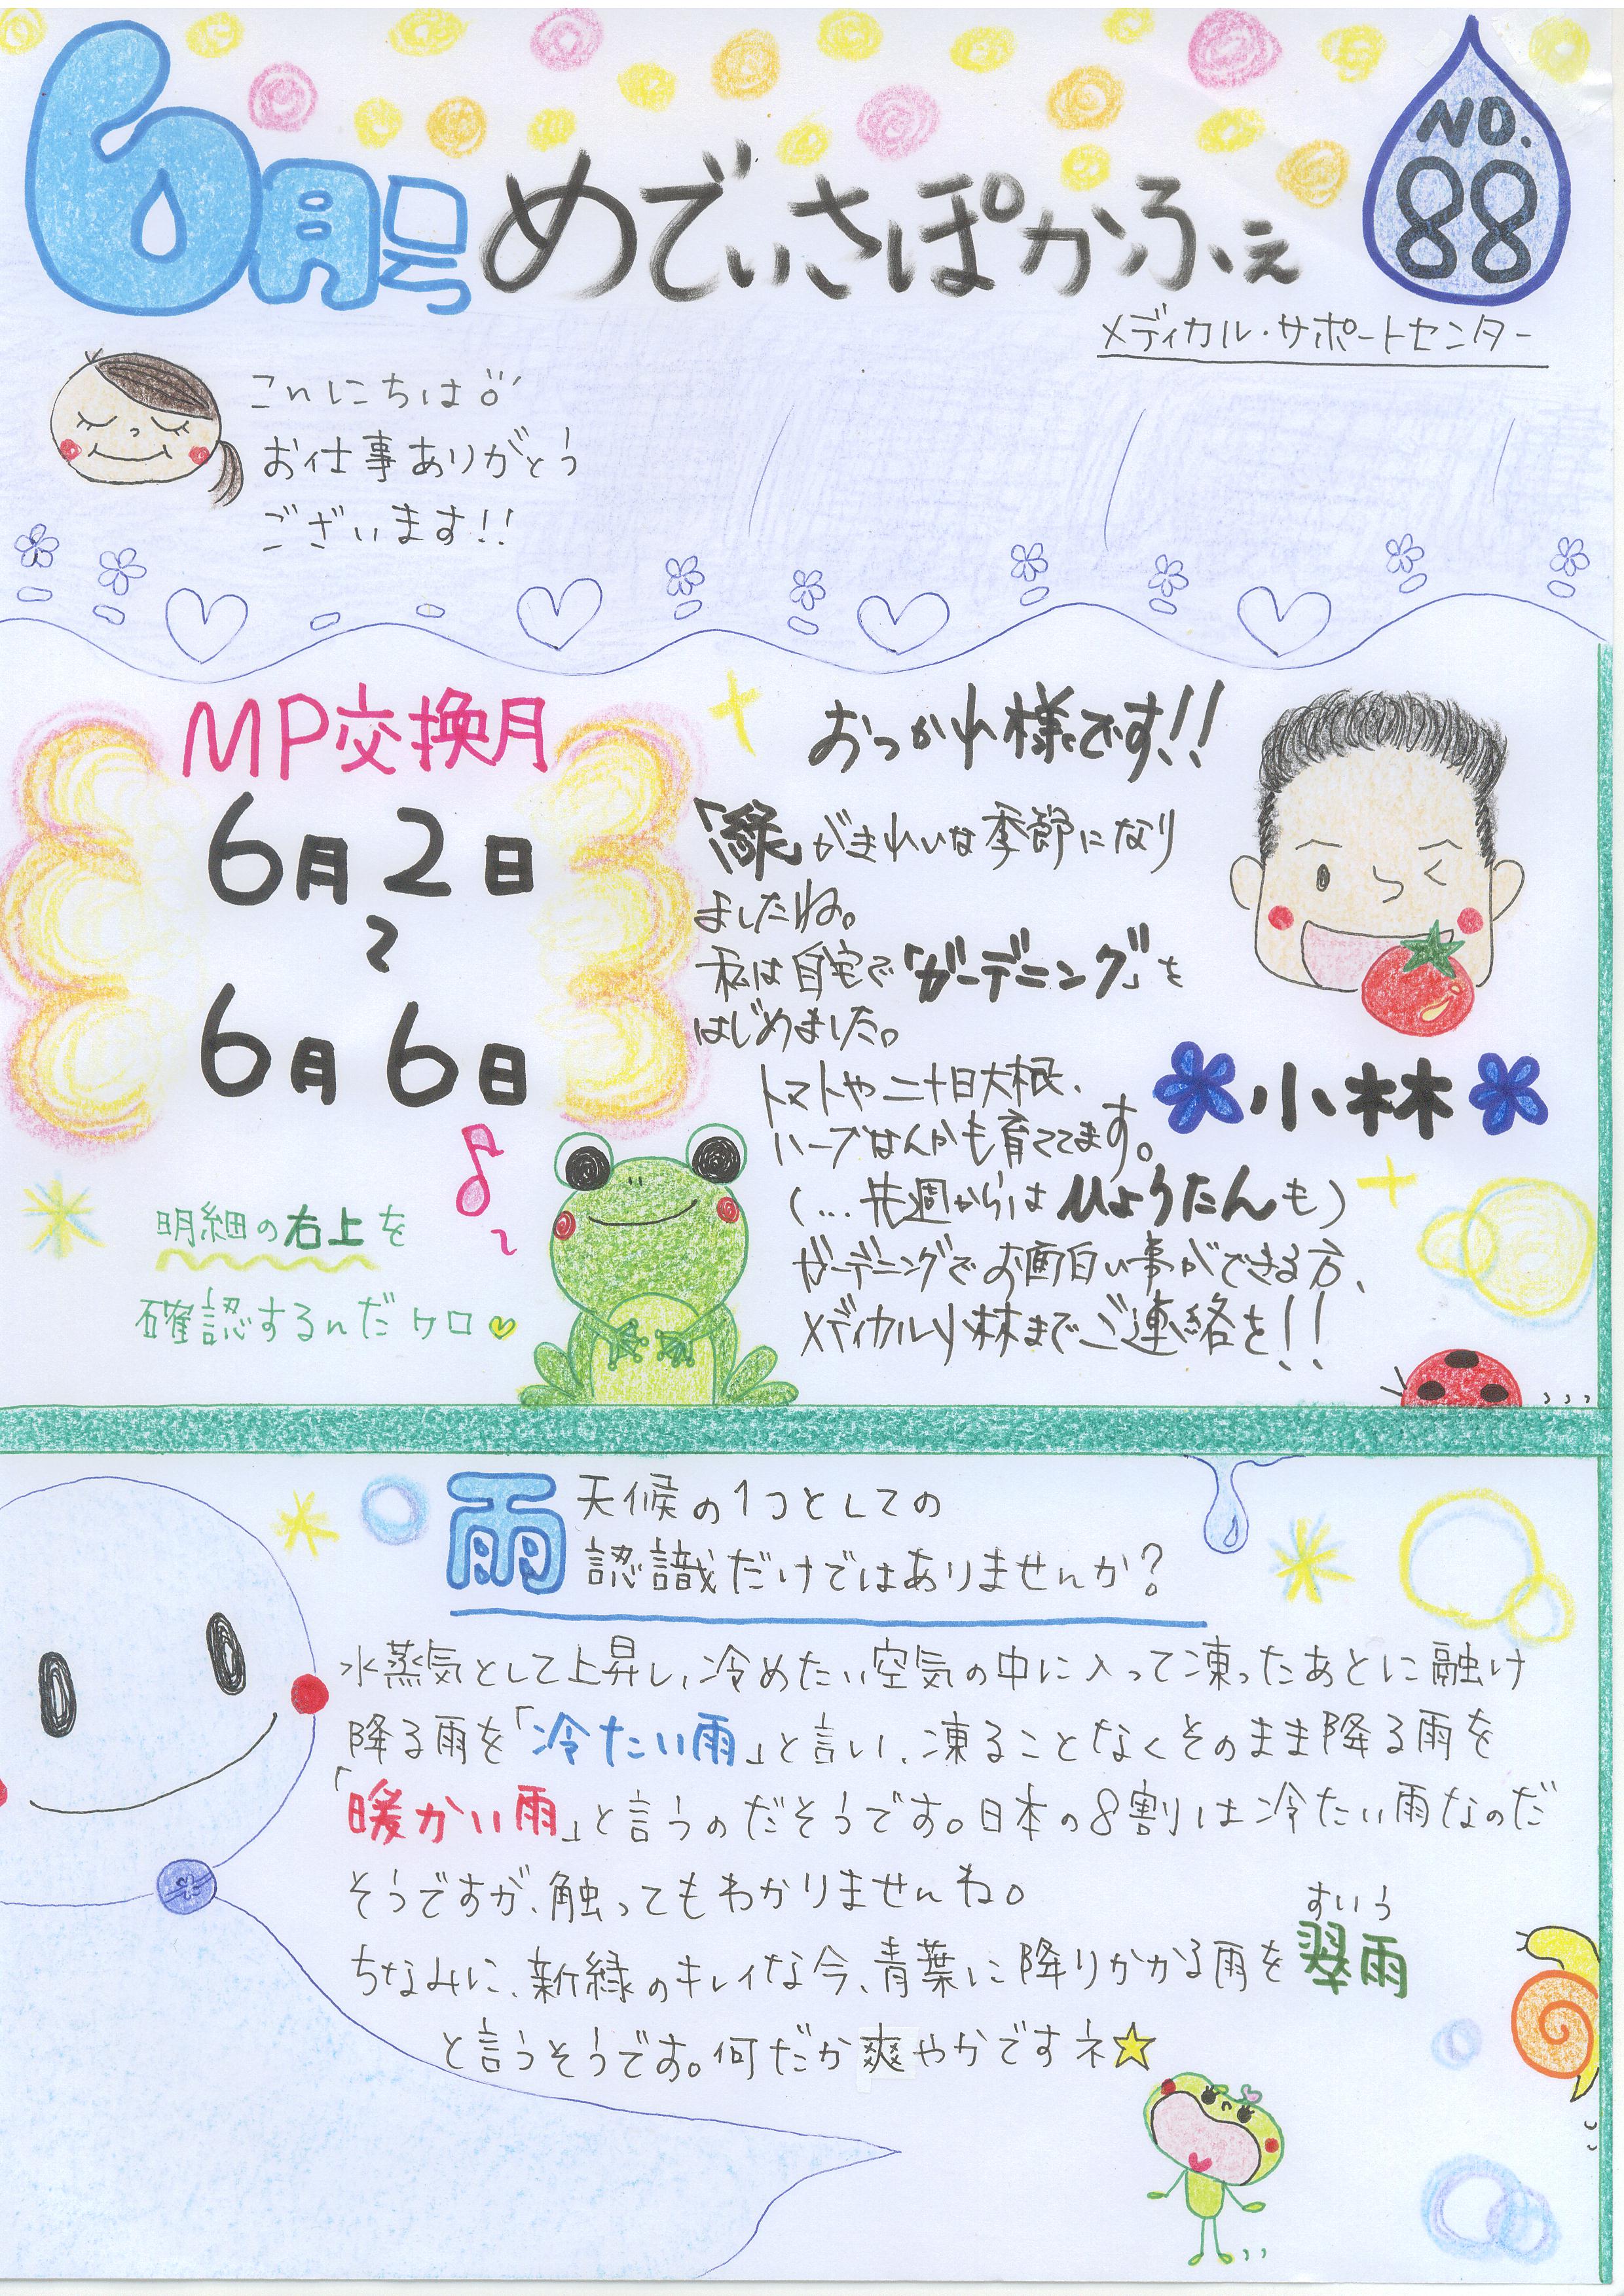 6月号 めでぃさぽかふぇ
NO.
88
メディカル・サポートセンター
こんにちは
お仕事ありがとう
ございます!!
MP交換月
6月2日
〜
6月6日
明細の右上を
確認するんだケロ
おつかれ様です!!
「緑」がきれいな季節になり
ましたね。
私は自宅で「ガーデニング」を
はじめました。
トマトや二十日大根、
ハーブなんかも育ててます。
(…先週からはひょうたんも)
ガーデニングでお面白い事ができる方、
メディカル小林までご連絡を!!
小林
雨 天候の1つとしての
認識だけではありませんか?
水蒸気として上昇し、冷めたい空気の中に入って凍ったあとに融け
降る雨を「冷たい雨」と言い、凍ることなくそのまま降る雨を
「暖かい雨」と言うのだそうです。日本の8割は冷たい雨なのだ
そうですが、触ってもわかりませんね。
すいう
ちなみに、新緑のキレイな今、青葉に降りかかる雨を翠雨
と言うそうです。何だか爽やかですネ☆